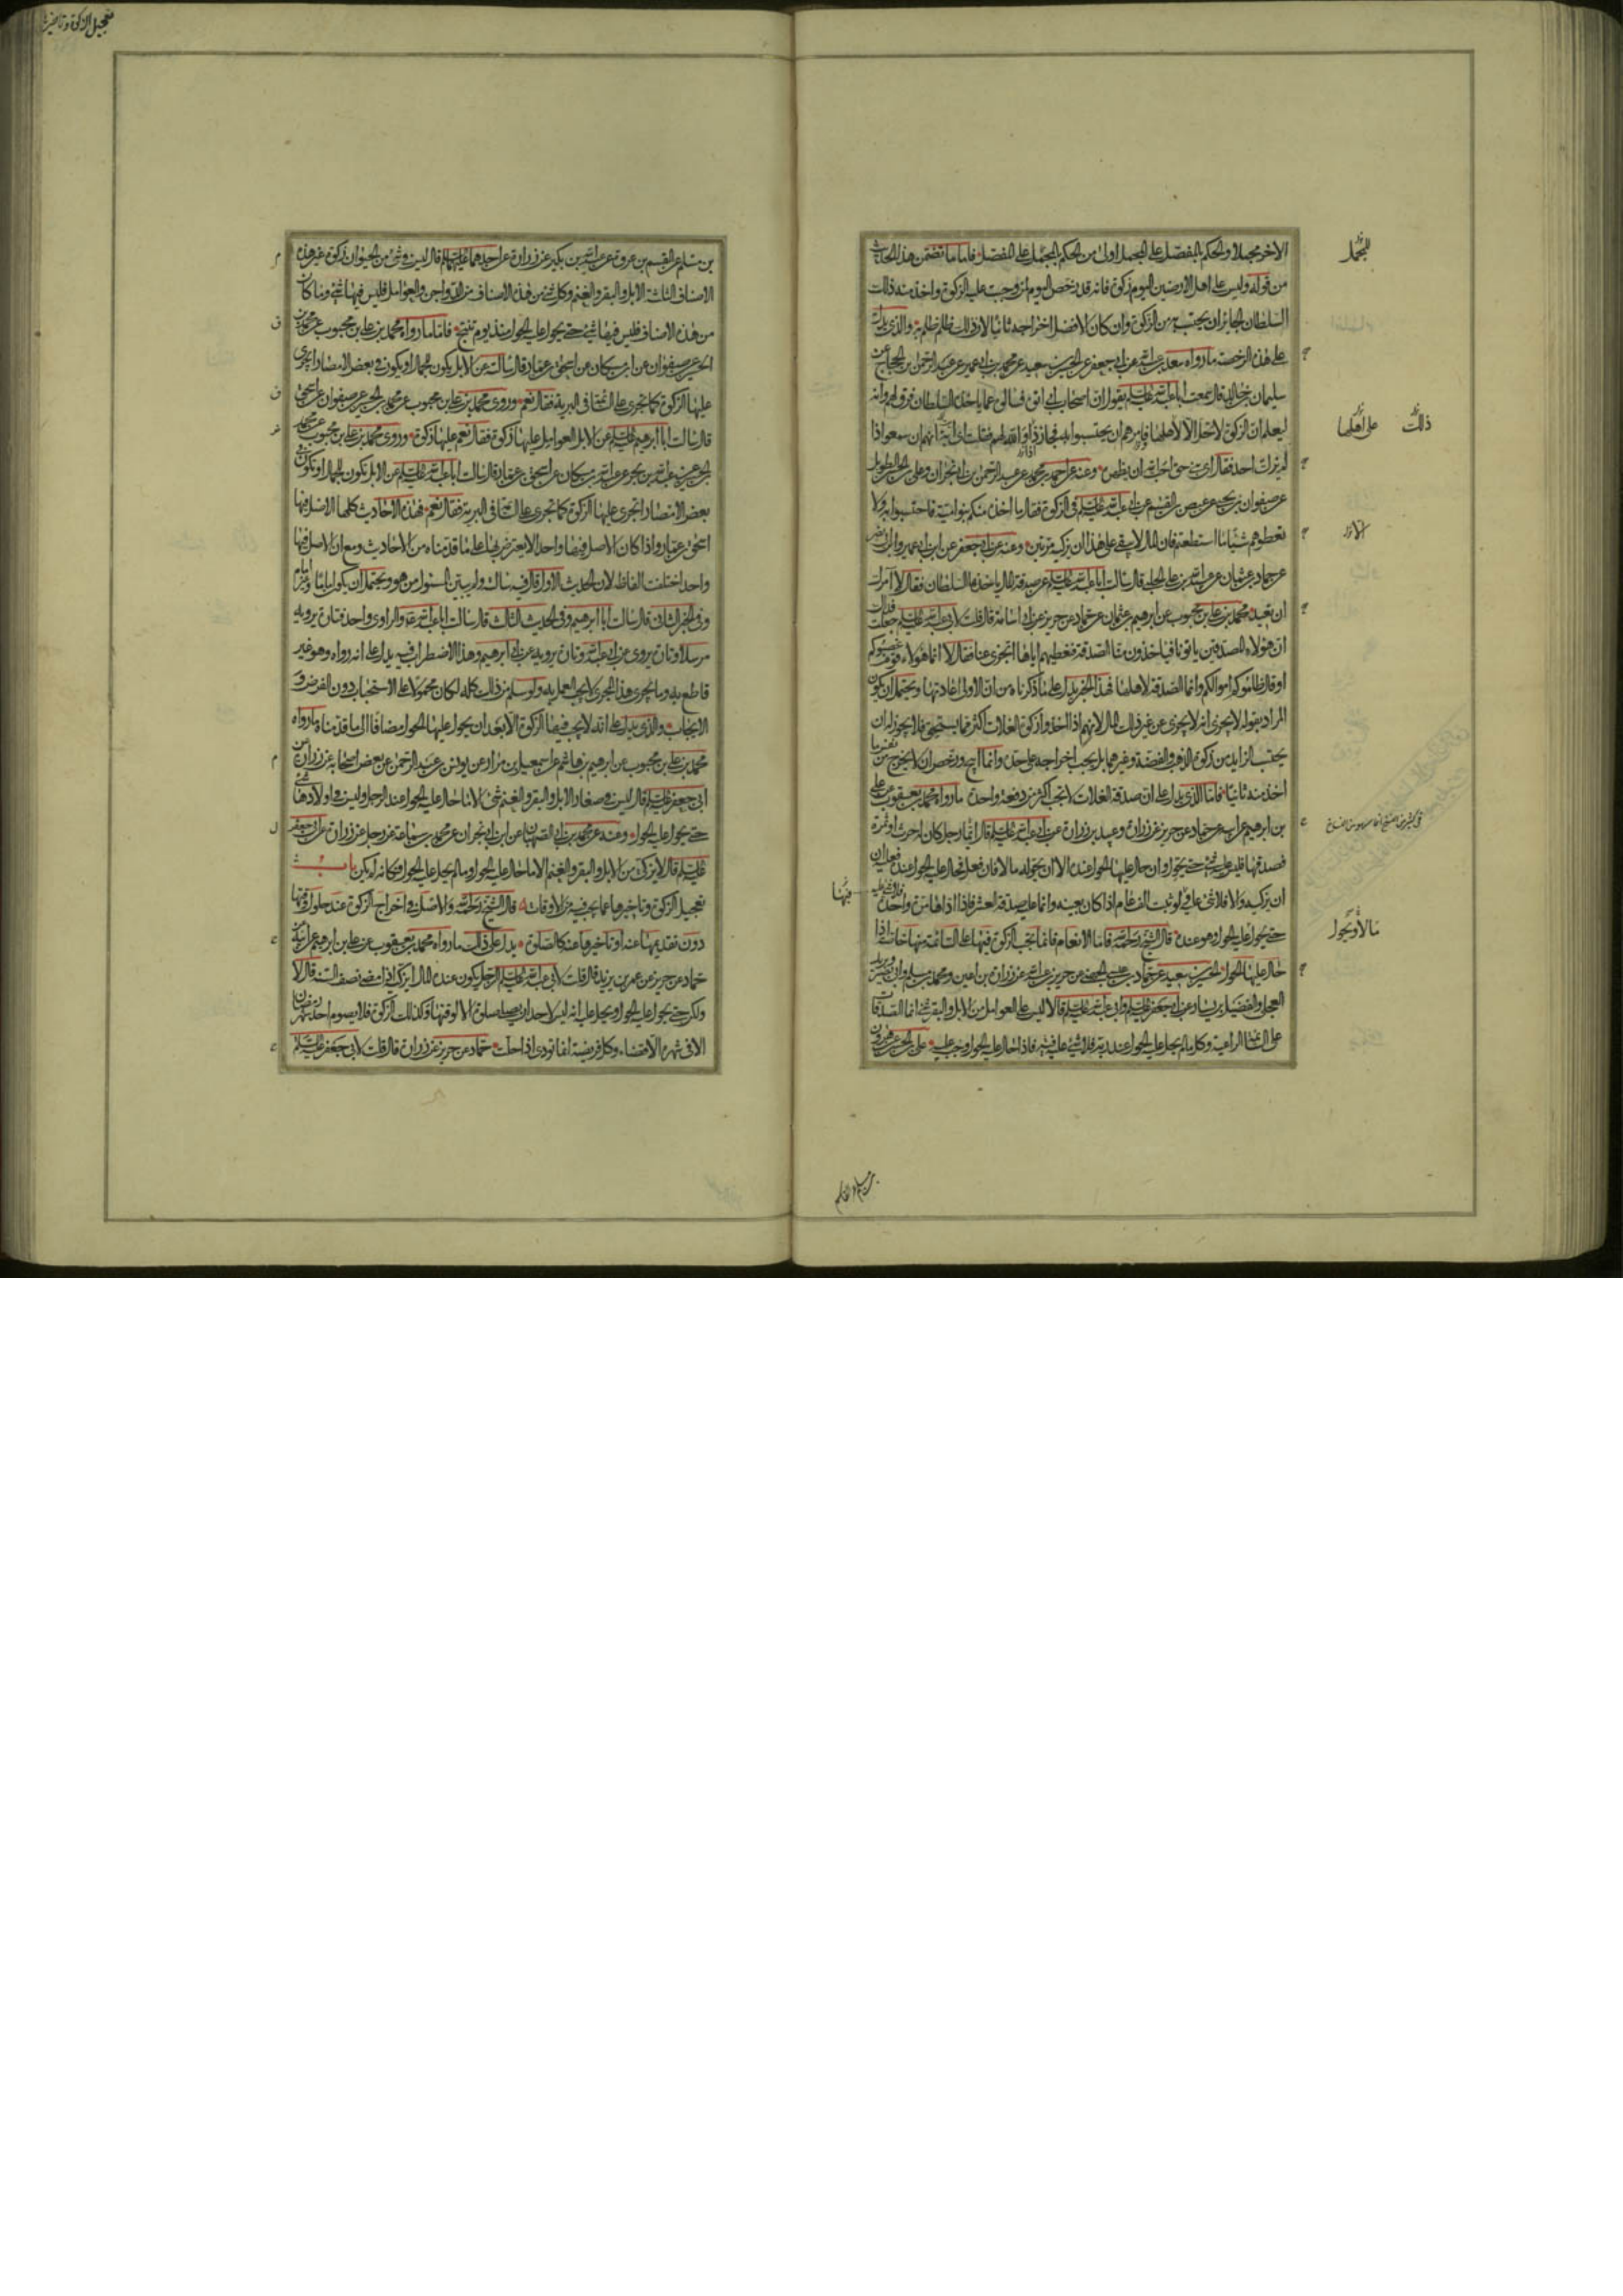 الاخر مجملا والحكم بالمفصل على المجمل اولى من الحكم بالمجمل على المفصل فاما ما تضمن هذا الحديث
من قوله وليس على اهل الارضين اليوم زكوة فانه قد رخص اليوم لمن وجبت عليه الزكوة واخذ منه ذلك
السلطان الجائر ان يحتسب به من الزكوة وان كان الافضل اخراجه ثانيا لان ذلك ظلم ظلم به والذي يدل
على هذه الرخصة ما رواه سعد بن عبد الله عن ابي جعفر عن الحسين بن سعيد عن محمد بن ابي عمير عن عبد الرحمن بن الحجاج عن
سليمان بن خالد قال سمعت ابا عبد الله عليه السلم يقول ان اصحاب ابي اتوه فسالوه عما ياخذ السلطان فرق لهم وانه
ليعلم ان الزكوة لا تحل الا لاهلها فامرهم ان يحتسبوا به فجاز ذا والله لهم فقلت اي ابه انهم ان سمعوا اذا
لم يزك احد فقال اي بني حق احب الله ان يظهره وعنه عن احمد بن محمد عن عبد الرحمن بن ابي نجران وعلي بن الحسن الطويل
عن صفوان بن يحيى عن عيص بن القسم عن ابي عبد الله عليه السلم في الزكوة فقال ما اخذ منكم بنو امية فاحتسبوا به ولا
تعطوهم شيئا ما استطعتم فان المال لا يبقى على هذا ان يزكيه مرتين وعنه عن ابي جعفر عن ابن ابي عمير وابن ابي نصر
عن حماد بن عثمان عن عبيد الله بن علي الحلبي قال سالت ابا عبد الله عليه السلم عن صدقة المال ياخذها السلطان فقال لا آمرك
ان تعيد محمد بن علي بن محبوب عن ابراهيم بن عثمان عن حماد عن حريز عن ابي اسامة قال قلت لابي عبد الله عليه السلم جعلت فداك
ان هؤلاء المصدقين ياتونا فياخذون منا الصدقة فنعطيهم اياها اتجزي عنا فقال لا انما هؤلاء قوم غصبوكم
او قال ظلموكم اموالكم وانما الصدقة لاهلها فهذا الخبر يدل على ما ذكرناه من ان الاولى اعادتها ويحتمل ان يكون
المراد بقوله لا يجزي انه لا يجزي عن غير ذلك المال لانهم اذا اخذوا زكوة الغلات اكثر مما يستحق فلا يجوز له ان
يحتسب الزايد من زكوة الذهب والفضة وغيرهما بل يجب اخراجه على حدة وانما ابيح ورخص ان لا يخرج من نفس ما
اخذ منه ثانيا فاما الذي يدل على ان صدقة الغلات لا تجب اكثر من دفعة واحدة ما رواه محمد بن يعقوب عن علي
بن ابراهيم عن ابيه عن حماد عن حريز عن زرارة وعبيد بن زرارة عن ابي عبد الله عليه السلم قال ايما رجل كان له حرث او ثمرة
فصدقها فليس عليه شيء حتى يحول وان حال عليها الحول عنده الا ان يحوله مالا فان فعل فحال عليه الحول عنده فعليه ان
ان يزكيه والا فلا شيء عليه ولو ثبت الف عام اذا كان بعينه وانما عليه صدقة العشر فاذا اداها مرة واحدة فلا شيء عليه
حتى يحول عليه الحول وهو عنده قال الشيخ رحمه الله فاما الانعام فانما تجب الزكوة فيها على السائمة منها خاصة اذا
حال عليها الحول الحسين بن سعيد عن حماد بن عيسى الجهني عن حريز بن عبد الله عن زرارة بن اعين ومحمد بن مسلم وابي بصير وبريد
العجلي والفضيل بن يسار عن ابي جعفر عليه السلم وابي عبد الله عليه السلم قالا ليس على العوامل من الابل والبقر شيء انما الصدقات
على السائمة الراعية وكل ما لم يحل عليه الحول عند ربه فلا شيء عليه فيه فاذا حال عليه الحول وجب عليه علي بن الحسن عن هرون
للمجمل
ذلك
على اهلها
الا ان
مالا ويحول
فيها
بن مسلم عن القسم بن عروة عن عبد الله بن بكير عن زرارة عن احدهما عليهما السلم قال ليس في شيء من الحيوان زكوة غير هذه
الاصناف الثلثة الابل والبقر والغنم وكل شيء من هذه الاصناف من الدواجن والعوامل فليس فيها شيء وما كان
من هذه الاصناف فليس فيها شيء حتى يحول عليه الحول منذ يوم تنتج فاما ما رواه محمد بن علي بن محبوب عن محمد بن
الحسين عن صفوان عن ابن مسكان عن اسحق بن عمار قال سالته عن الابل يكون للجمال او يكون في بعض الامصار اتجري
عليها الزكوة كما تجري على السائمة في البرية فقال نعم وروى محمد بن علي بن محبوب عن محمد بن الحسين عن صفوان عن اسحق
قال سالت ابا ابرهيم عليه السلم عن الابل العوامل عليها زكوة فقال نعم عليها زكوة وروى محمد بن علي بن محبوب عن محمد بن
الحسين عن عبد الله بن بحر عن عبد الله بن مسكان عن اسحق بن عمار قال سالت ابا عبد الله عليه السلم عن الابل تكون للجمال او تكون في
بعض الامصار اتجري عليها الزكوة كما تجري على السائمة في البرية فقال نعم فهذه الاحاديث كلها الاصل فيها
اسحق بن عمار واذا كان الاصل فيها واحدا لا يعترض بها على ما قدمناه من الاحاديث ومع ان الاصل فيها
واحد اختلفت الفاظه لان الحديث الاول قال فيه سالته ولم يبين المسئول من هو ويحتمل ان يكون اماما وغير امام
وفي الخبر الثاني قال سالت ابا ابرهيم وفي الحديث الثالث قال سالت ابا عبد الله عه والراوي واحد فتارة يرويه
مرسلا وتارة يروي عن ابي عبد الله وتارة يرويه عن ابي ابرهيم وهذا الاضطراب فيه يدل على انه رواه وهو غير
قاطع به وما يجري هذا المجرى لا يجب العمل به ولو سلم من ذلك كله لكان محمولا على الاستحباب دون الفرض و
الايجاب والذي يدل على انه لا يجب فيها الزكوة الا بعد ان يحول عليها الحول مضافا الى ما قدمناه ما رواه
محمد بن علي بن محبوب عن ابرهيم بن هاشم عن اسمعيل بن مرار عن يونس بن عبد الرحمن عن بعض اصحابه عن زرارة عن
ابي جعفر عليه السلم قال ليس في صغار الابل والبقر والغنم شيء الا ما حال عليه الحول عند الرجل وليس في اولادها شيء
حتى يحول عليه الحول وعنه عن محمد بن ابي الصهبان عن ابن ابي نجران عن محمد بن سماعة عن رجل عن زرارة عن ابي جعفر
عليه السلم قال لا يزكى من الابل والبقر والغنم الا ما حال عليه الحول وما لم يحل عليه الحول فكانه لم يكن باب
تعجيل الزكوة وتاخيرها عما يجب فيه من الاوقات قال الشيخ رحمه الله والاصل في اخراج الزكوة عند حلول وقتها
دون تقديمها عنه او تاخيرها عنه كالصلوة يدل على ذلك ما رواه محمد بن يعقوب عن علي بن ابرهيم عن ابيه عن
حماد عن حريز عن عمر بن يزيد قال قلت لابي عبد الله عليه السلم الرجل يكون عنده المال ايزكيه اذا مضى نصف السنة قال لا
ولكن حتى يحول عليه الحول ويحل عليه انه ليس لاحد ان يصلي صلوة الا لوقتها وكذلك الزكوة فلا يصوم احد شهر رمضان
الا في شهره الا قضاء وكل فريضة انما تودى اذا حلت حماد عن حريز عن زرارة قال قلت لابي جعفر عليه السلم
تعجيل الزكوة وتاخيرها